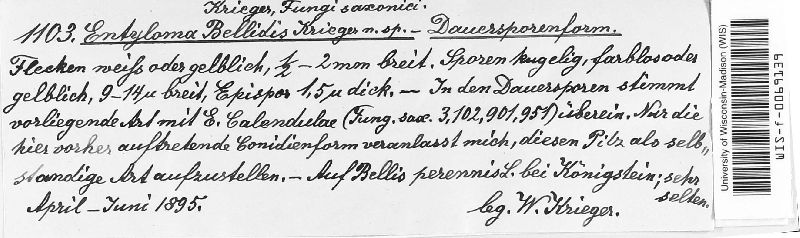 Krieger, Fungi saxonici.
1103. Entyloma Bellidis Krieger n. sp. – Dauersporenform.
Flecken weiß oder gelblich, ½ – 2 mm breit. Sporen kugelig, farblos oder
gelblich, 9–14 µ breit, Epispor 1,5 µ dick. – In den Dauersporen stimmt
vorliegende Art mit E. Calendulae (Fung. sax. 3, 102, 901, 951) überein. Nur die
hier vorher auftretende Conidienform veranlasst mich, diesen Pilz als selb„
standige Art aufzustellen. – Auf Bellis perennis L. bei Königstein; sehr
selten.
April – Juni 1895.
lg. W. Krieger.
University of Wisconsin-Madison (WIS)
WIS-f-0069139